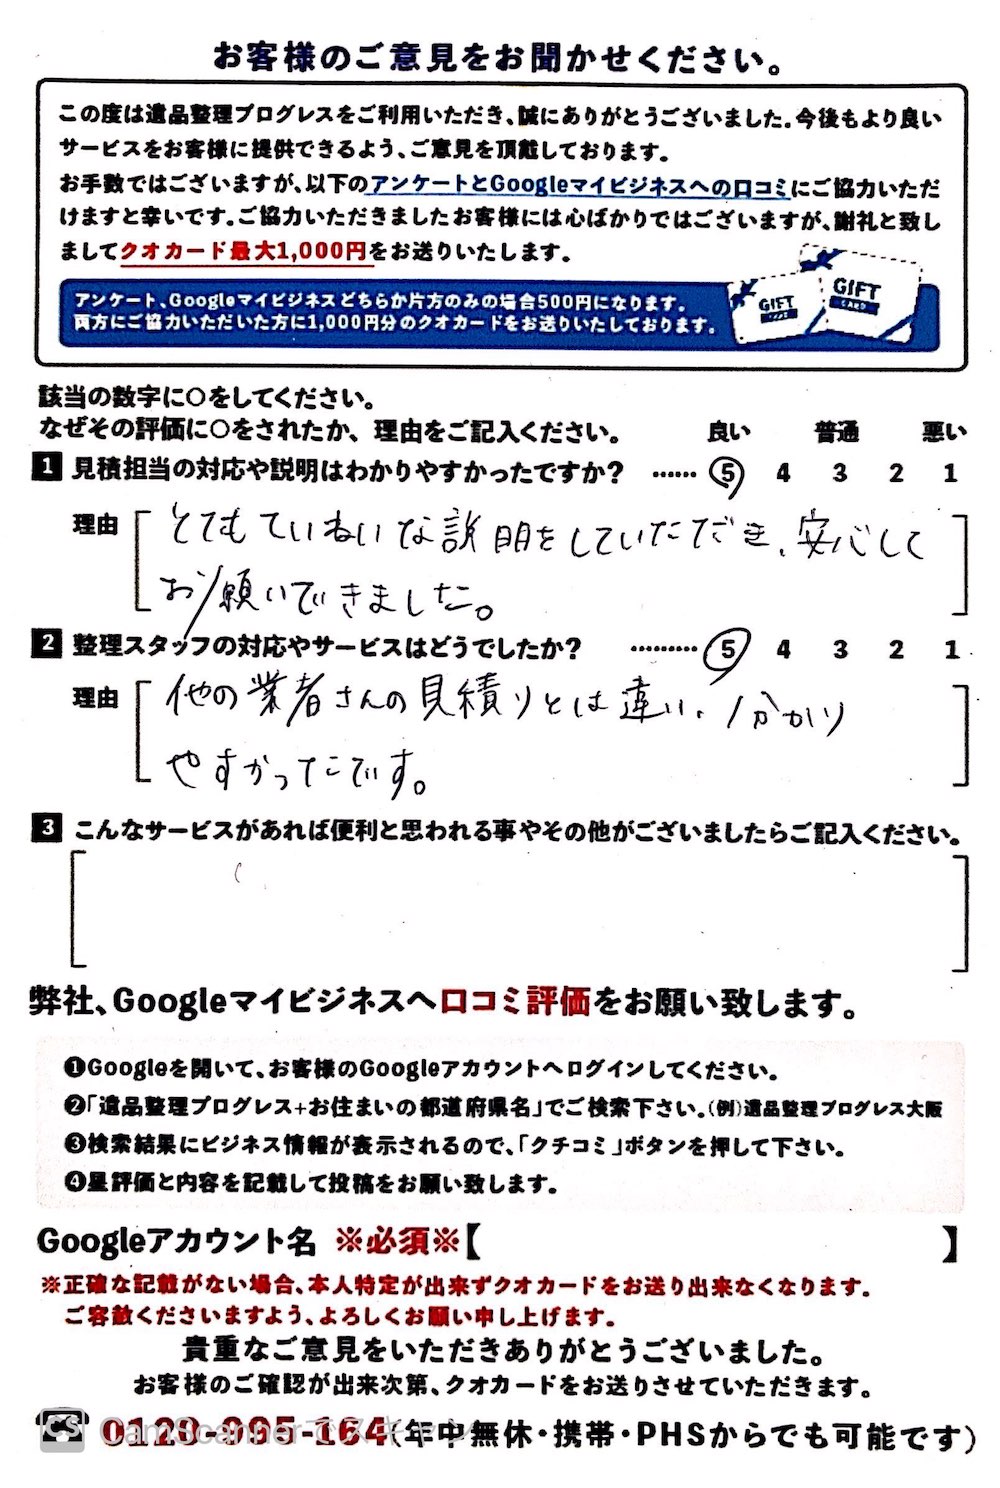 お客様のご意見をお聞かせください。
この度は遺品整理プログレスをご利用いただき、誠にありがとうございました。今後もより良い
サービスをお客様に提供できるよう、ご意見を頂戴しております。
お手数ではございますが、以下のアンケートとGoogleマイビジネスへの口コミにご協力いただ
けますと幸いです。ご協力いただきましたお客様には心ばかりではございますが、謝礼と致し
ましてクオカード最大1,000円をお送りいたします。
アンケート、Googleマイビジネスどちらか片方のみの場合500円になります。
両方にご協力いただいた方に1,000円分のクオカードをお送りいたしております。
GIFT
GIFT CARD
該当の数字に○をしてください。
なぜその評価に○をされたか、理由をご記入ください。 良い 普通 悪い
1 見積担当の対応や説明はわかりやすかったですか? …… 5 4 3 2 1
理由 とてもていねいな説明をしていただき、安心して
お願いできました。
2 整理スタッフの対応やサービスはどうでしたか? ……… 5 4 3 2 1
理由 他の業者さんの見積りとは違い、分かり
やすかったです。
3 こんなサービスがあれば便利と思われる事やその他がございましたらご記入ください。
弊社、Googleマイビジネスへ口コミ評価をお願い致します。
❶Googleを開いて、お客様のGoogleアカウントへログインしてください。
❷「遺品整理プログレス+お住まいの都道府県名」でご検索下さい。(例)遺品整理プログレス大阪
❸検索結果にビジネス情報が表示されるので、「クチコミ」ボタンを押して下さい。
❹星評価と内容を記載して投稿をお願い致します。
Googleアカウント名 ※必須※【 】
※正確な記載がない場合、本人特定が出来ずクオカードをお送り出来なくなります。
ご容赦くださいますよう、よろしくお願い申し上げます。
貴重なご意見をいただきありがとうございました。
お客様のご確認が出来次第、クオカードをお送りさせていただきます。
0120-995-164(年中無休・携帯・PHSからでも可能です)
CS CamScannerでスキャン